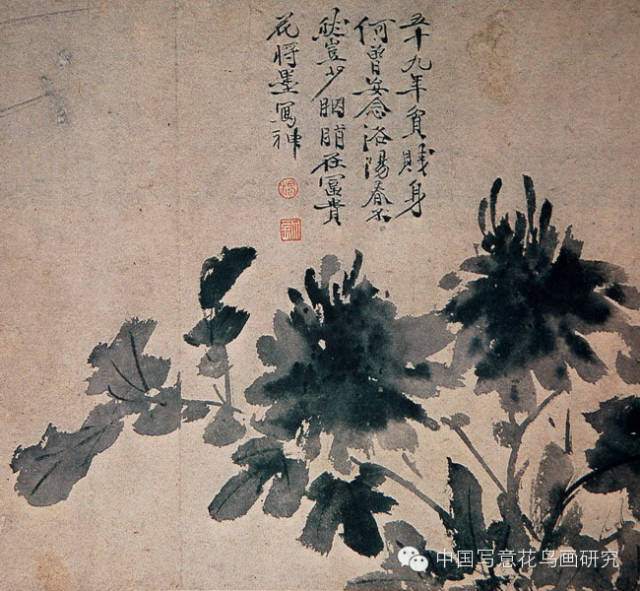 五十九年貧賤身
何曾妄念洛陽春不
然豈少胭脂在富貴
花將墨寫神
中国写意花鸟画研究